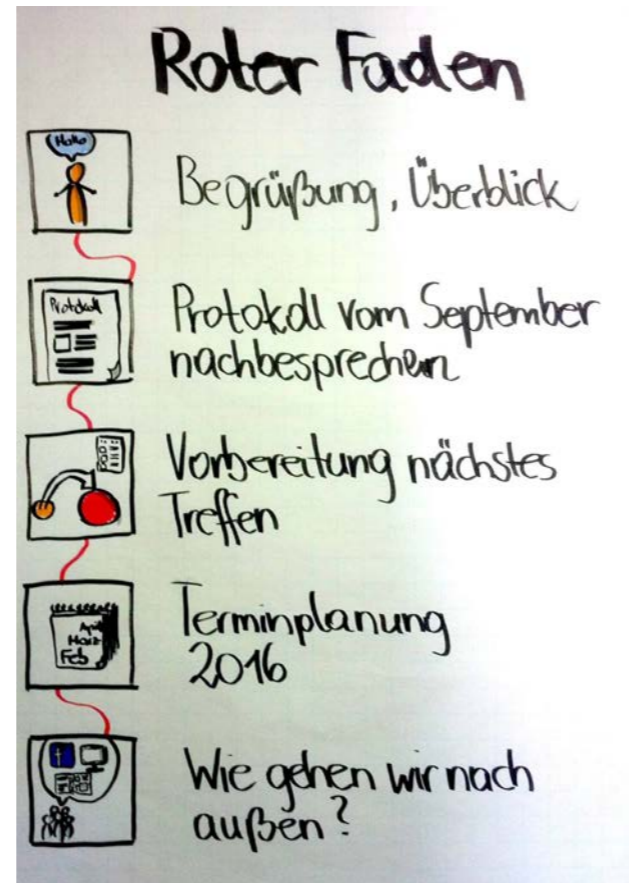 Roter Faden
Hallo
Begrüßung, Überblick
Protokoll
Protokoll vom September
nachbesprechen
Vorbereitung nächstes
Treffen
April
März
Feb
Terminplanung
2016
f
Wie gehen wir nach
außen?